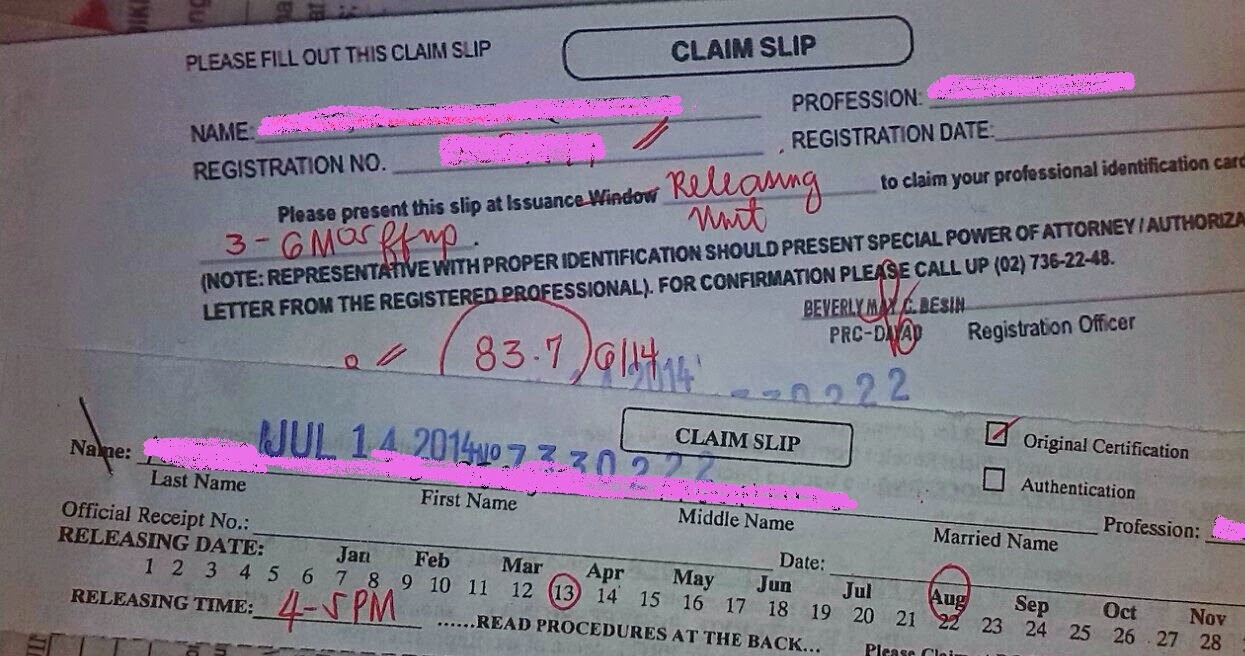 PLEASE FILL OUT THIS CLAIM SLIP
CLAIM SLIP
NAME:
PROFESSION:
REGISTRATION NO.
REGISTRATION DATE:
Please present this slip at Issuance Window Releasing Unit to claim your professional identification card
3 - 6 Mos
(NOTE: REPRESENTATIVE WITH PROPER IDENTIFICATION SHOULD PRESENT SPECIAL POWER OF ATTORNEY / AUTHORIZA
LETTER FROM THE REGISTERED PROFESSIONAL). FOR CONFIRMATION PLEASE CALL UP (02) 736-22-48.
BEVERLY MAY C. BESIN
PRC-DAVAO Registration Officer
83.7 6/14
2014
CLAIM SLIP
Original Certification
Name: JUL 14 2014 No 7330222
Authentication
Last Name First Name Middle Name Married Name Profession:
Official Receipt No.: Date:
RELEASING DATE: Jan Feb Mar Apr May Jun Jul Aug Sep Oct Nov
1 2 3 4 5 6 7 8 9 10 11 12 13 14 15 16 17 18 19 20 21 22 23 24 25 26 27 28
RELEASING TIME: 4-5 PM ......READ PROCEDURES AT THE BACK...
Please